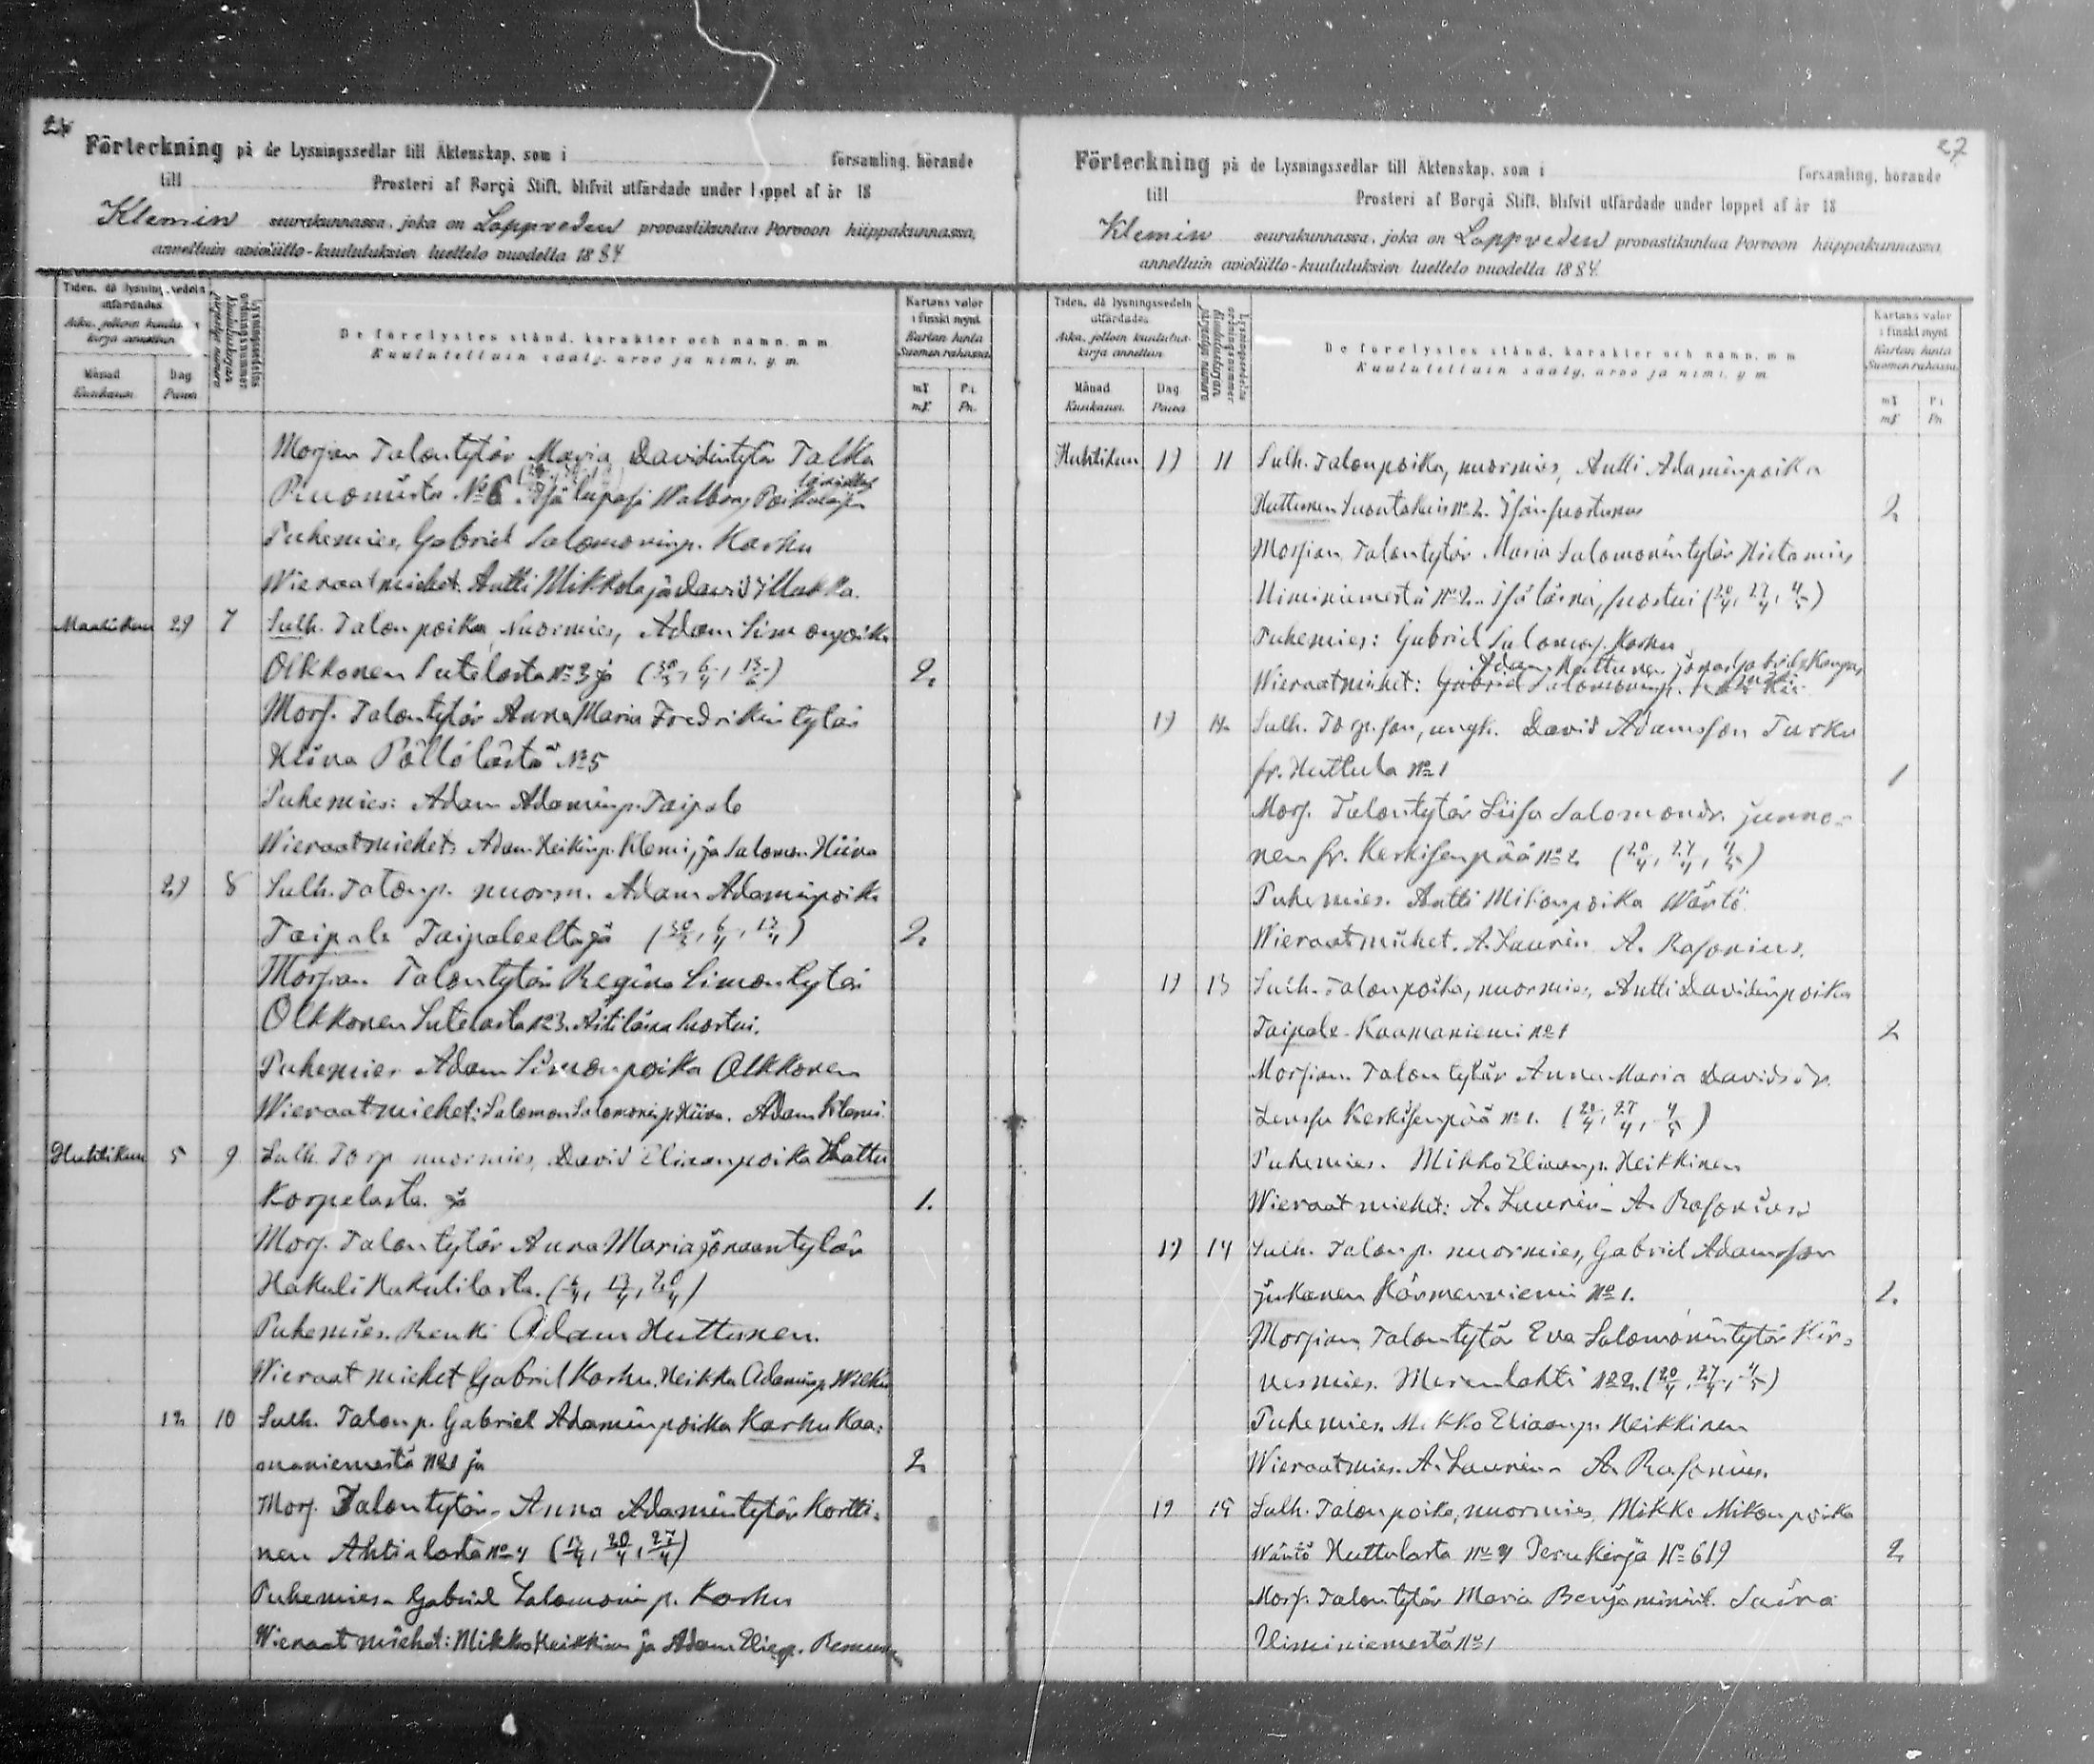 26
Förteckning på de Lysningssedlar till Äktenskap, som i församling, hörande
till Prosteri af Borgå Stift, blifvit utfärdade under loppet af år 18
Klemin seurakunnassa, joka on Lappveden provastikuntaa Porvoon hiippakunnassa,
annettuin avioliitto-kuulutuksien luettelo vuodella 1884
Tiden, då lysningssedeln utfärdades
Aika, jolloin kuulutuskirja annettiin
Månad Kuukausi. Dag Päivä
Lysningssedelns ordningsnummer
Kuulutuskirjan järjestys numero
De förelystes stånd, karakter och namn, m m
Kuulutettuin sääty, arvo ja nimi, y. m.
Kartans valör i finskt mynt
Kartan hinta Suomen rahassa
mf Pi
mf Pn.
Morsian Talontytär Maria Davidintytär Talka
No 6
Puhemies, Gabriel Salomoninp. Karhu
Wieraatmiehet. Antti Mikkola ja David
Maalikuu 29 7 Sulh. Talonpoika, Nuormies, Adam Simonpoika
Olkkonen Sutelasta No 3 ja (30/3, 6/4, 13/4) 2.
Mors. Talontytär Anna Maria Fredrikintytär
Hiiva Pöllölästä No 5
Puhemies: Adam Adaminp. Taipale
Wieraatmiehet: Adam Heikinp. Klemi, ja Salomon Hiiva
29 8 Sulh. Talonp. nuorm. Adam Adaminpoika
Taipale Taipaleelta ja (30/3, 6/4, 13/4) 2.
Morsian Talontytär Regina Simontytär
Olkkonen Sutelasta No 3. Äiti läsnä suostui.
Puhemies Adam Simonpoika Olkkonen
Wieraatmiehet: Salomon Salomoninp. Hiiva. Adam Klemi.
Huhtikuu 5 9 Sulh. Torp nuormies, David Eliaanpoika Lattu
Korpelasta. ja 1.
Mors. Talontytär Anna Maria Jonaantytär
Hakuli Hakulilasta. (6/4, 13/4, 20/4)
Puhemies. Renki Adam Huttunen.
Wieraat miehet Gabriel Karhu. Heikki Adaminp.
12 10 Sulh. Talonp. Gabriel Adaminpoika Karhu Kaa-
maniemestä No 1 ja 2
Mors. Talontytär Anna Adamintytär Kortti-
nen Ahtialasta No 4 (13/4, 20/4, 27/4)
Puhemies Gabriel Salomonin p. Karhu
Wieraat miehet: Mikko Heikkinen ja Adam Eliap.
27
Förteckning på de Lysningssedlar till Äktenskap, som i församling, hörande
till Prosteri af Borgå Stift, blifvit utfärdade under loppet af år 18
Klemin seurakunnassa, joka on Lappveden provastikuntaa Porvoon hiippakunnassa,
annettuin avioliitto-kuulutuksien luettelo vuodella 1884.
Tiden, då lysningssedeln utfärdades
Aika, jolloin kuulutuskirja annettiin
Månad Kuukausi. Dag. Päivä
Lysningssedelns ordningsnummer
Kuulutuskirjan järjestys numero
De förelystes stånd, karakter och namn, m m
Kuulutettuin sääty, arvo ja nimi, y m
Kartans valör i finskt mynt
Kartan hinta Suomen rahassa
mf Pi
mf Pn
Huhtikuu 19 11 Sulh. Talonpoika, nuormies, Antti Adaminpoika
Huttunen No 2. Isän suostumus 2
Morsian Talontytär Maria Salomonintytär Hietamies
Uiminiemestä No 2. Isä läsnä, suostui (20/4, 27/4, 4/5)
Puhemies: Gabriel Salomons. Karhu
Adam Huttunen
Wieraatmiehet: Gabriel Salomoninp.
19 12 Sulh. Torp. son, ungk. David Adamsson Turku
fr. Huttula No 1 1
Mors. Talontytär Liisa Salomondr. Junno-
nen fr. Kerkisenpää No 2 (20/4, 27/4, 4/5)
Puhemies. Antti Mikonpoika Wärtö.
Wieraatmiehet. A. Laurén A. Rasonius.
19 13 Sulh. Talonpoika, nuormies, Antti Davidinpoika
Taipale Kaamaniemi No 1 2
Morsian. Talontytär Anna Maria Davidsdr.
Kerkisenpää No 1. (20/4, 27/4, 4/5)
Puhemies. Mikko Eliaanp. Heikkinen
Wieraat miehet: A. Laurén A. Rasonius
19 14 Sulh. Talonp. nuormies, Gabriel Adamsson
Jukanen No 1. 2.
Morsian Talontytär Eva Salomonintytär Hir-
vesmies. Merenlahti No 2. (20/4, 27/4, 4/5)
Puhemies. Mikko Eliaanp. Heikkinen
Wieraatmies. A. Laurén A. Rasonius.
19 15 Sulh. Talonpoika, nuormies, Mikko Mikonpoika
Wärtö Huttulasta No 4 Perukirja No 619 2
Mors. Talontytär Maria Benjaminint.
Uiminiemestä No 1